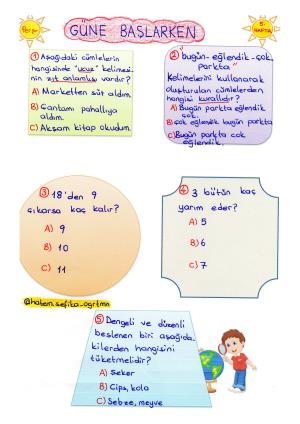 Perş.
GÜNE BAŞLARKEN
5.
HAFTA
① Aşağıdaki cümlelerin
hangisinde "ucuz" kelimesi-
nin zıt anlamlısı vardır?
A) Marketten süt aldım.
B) Çantamı pahalıya
aldım.
C) Akşam kitap okudum.
② "bugün-eğlendik-çok
parkta"
Kelimelerini kullanarak
oluşturulan cümlelerden
hangisi kurallıdır?
A) Bugün parkta eğlendik
çok.
B) Çok eğlendik bugün parkta
C) Bugün parkta çok
eğlendik.
③ 18'den 9
çıkarsa kaç kalır?
A) 9
B) 10
C) 11
④ 3 bütün kaç
yarım eder?
A) 5
B) 6
C) 7
@hatem.sefika_ogrtmn
⑤ Dengeli ve düzenli
beslenen biri aşağıda-
kilerden hangisini
tüketmelidir?
A) Şeker
B) Cips, kola
C) Sebze, meyve